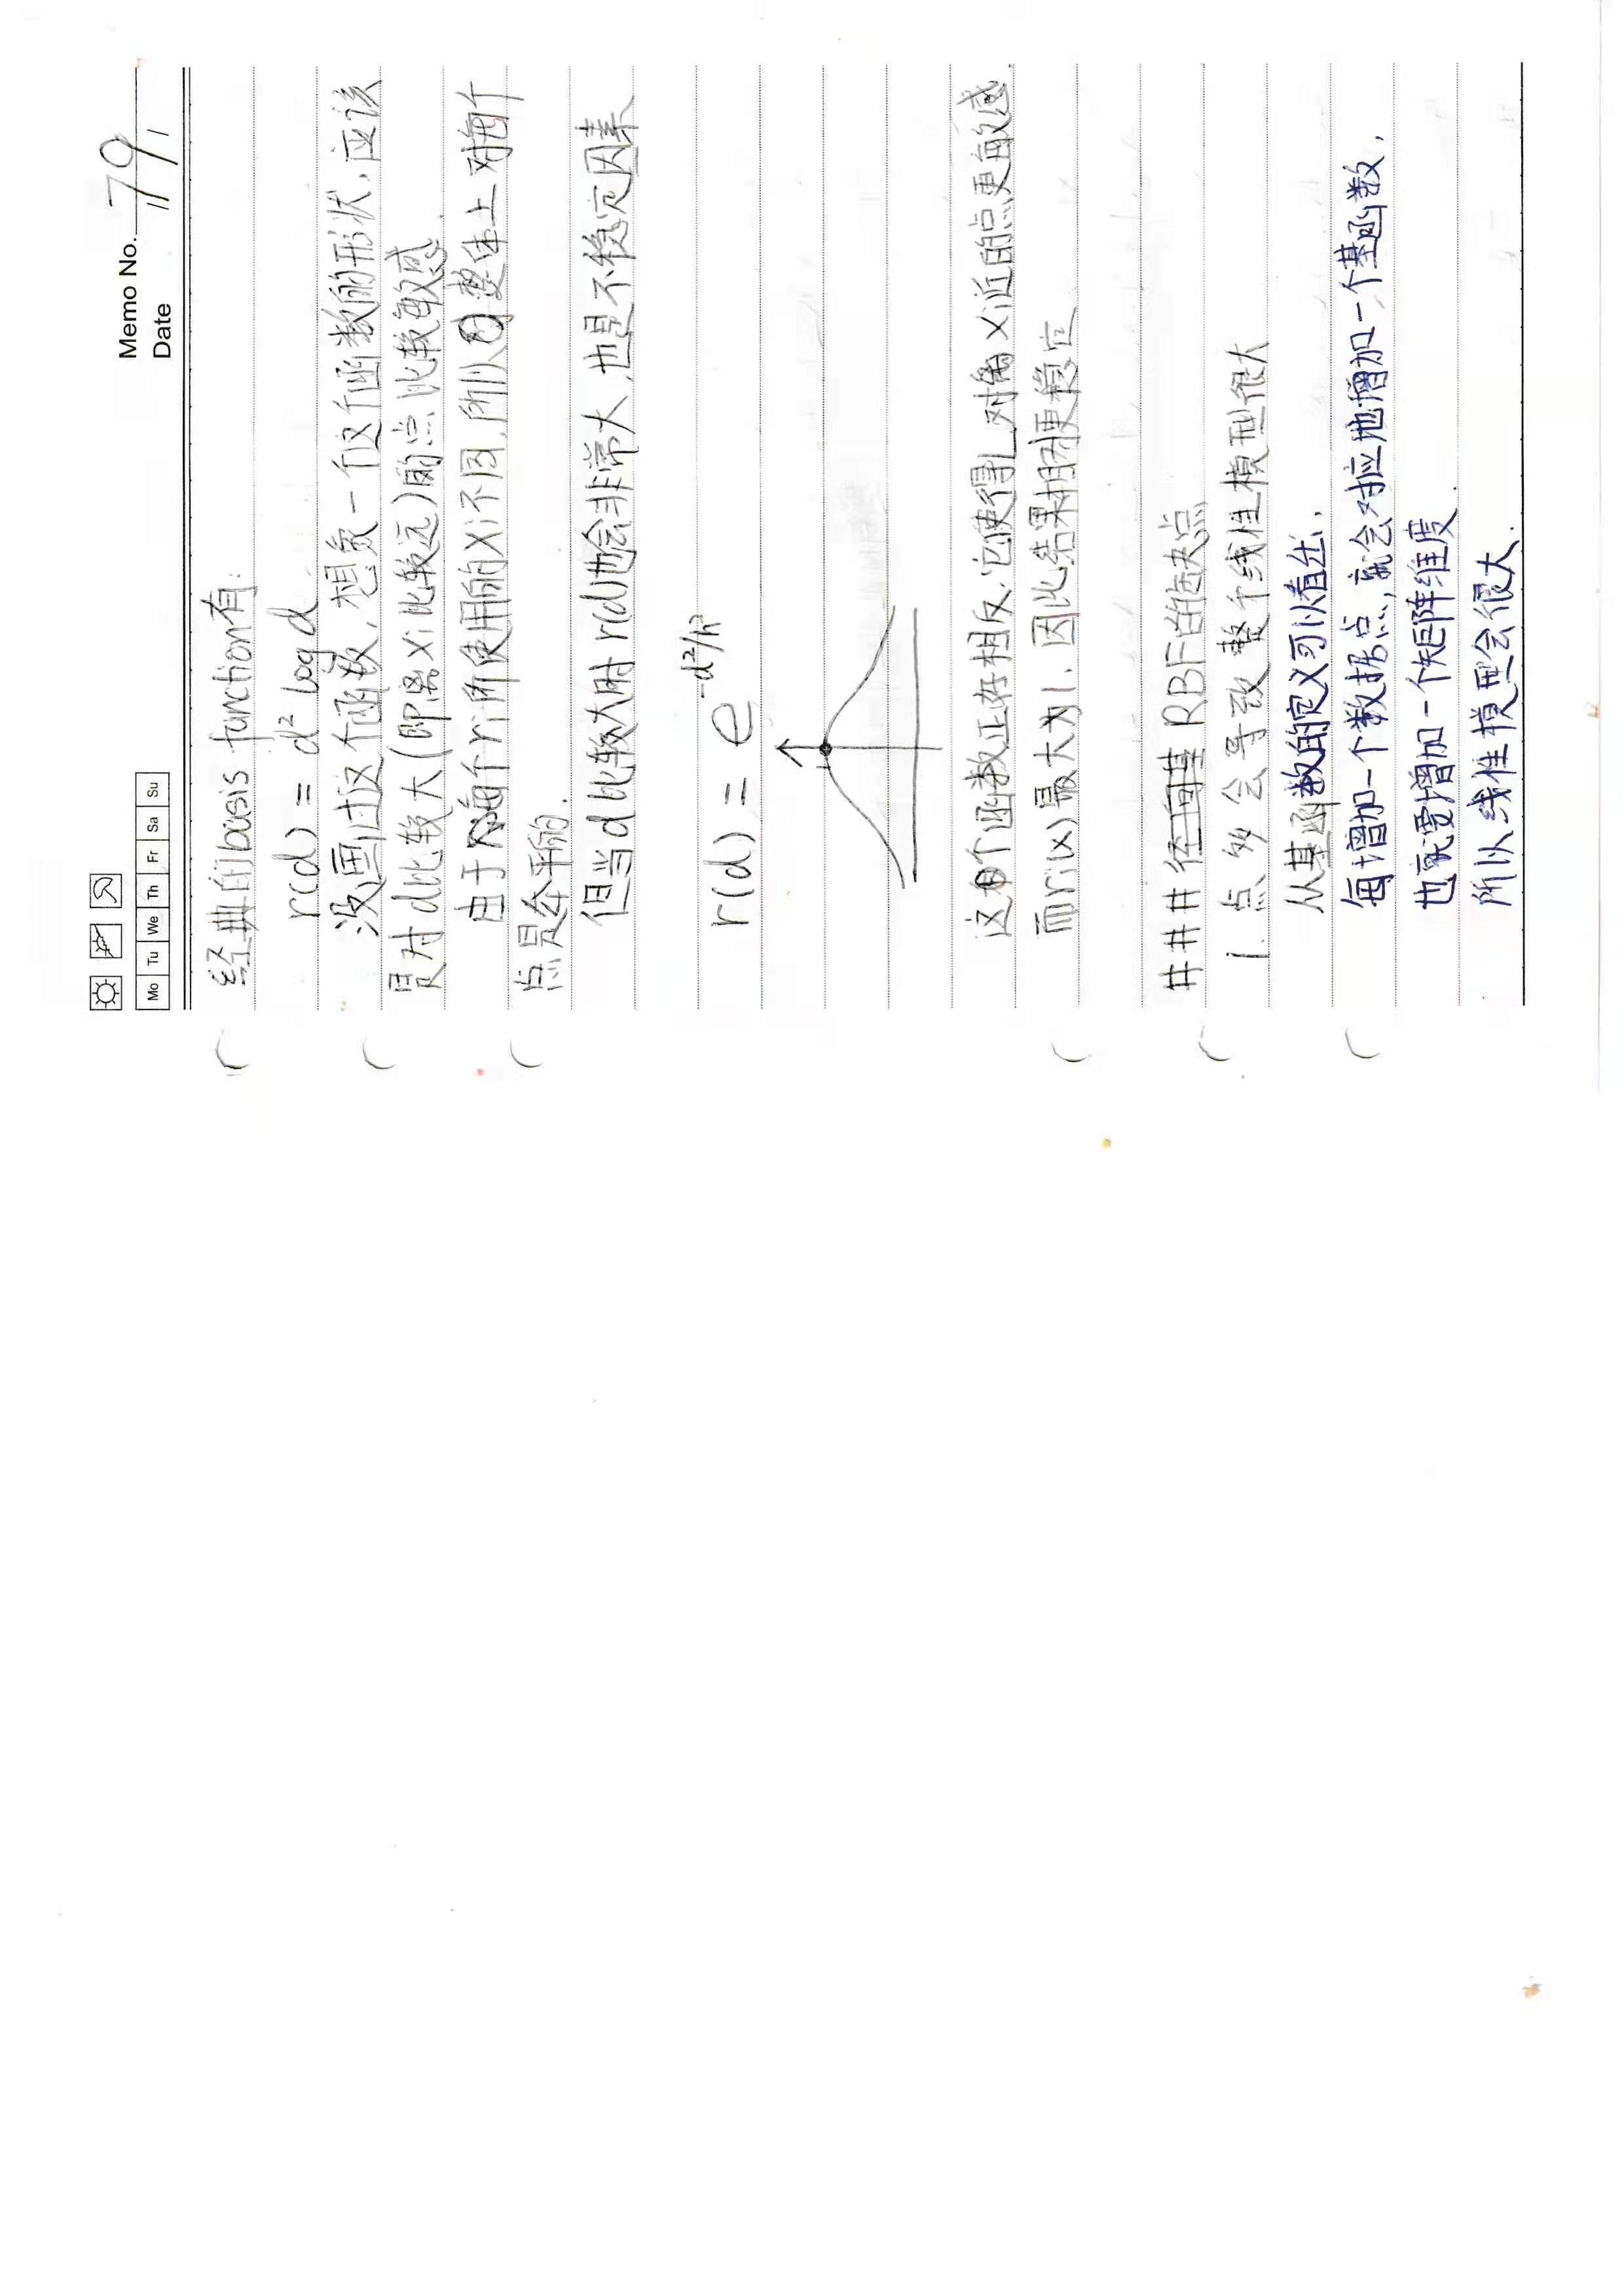 Mo Tu We Th Fr Sa Su
Memo No. 79
Date / /
经典的basis function有:
r(d) = d² log d
没画过这个函数,想象一个这个函数的形状,应该
是对d比较大(即离xi比较远)的点比较敏感.
由于每个ri所使用的xi不同,所以整体上对每个
点是公平的.
但当d比较大时r(d)也会非常大,也是不稳定因素
r(d) = e^{-d²/h²}
1
这个函数正好相反,它使得L对离xi近的点更敏感.
而ri(x)最大为1.因此结果相对更稳定
### RBF的缺点
1. 点多会导致整个线性模型很大
从基函数的定义可以看出,
每增加一个数据点,就会对应地增加一个基函数,
也就要增加一个矩阵维度.
所以线性模型会很大.